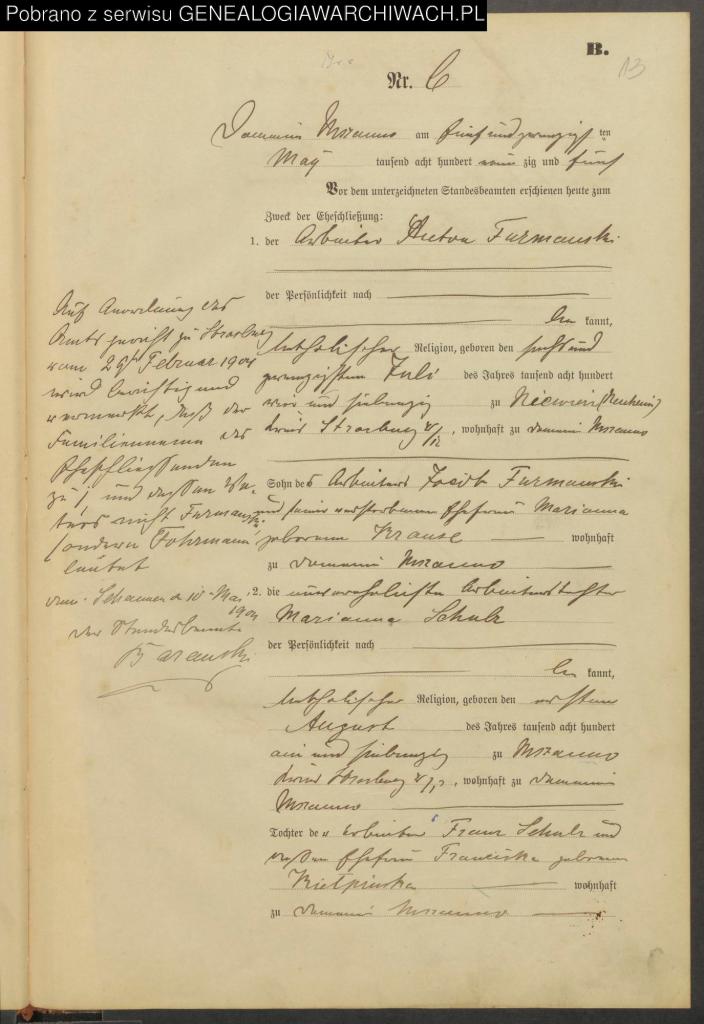 Pobrano z serwisu GENEALOGIAWARCHIWACH.PL
B.
13
Nr. 6
Domaine Mszanno am fünfundzwanzigsten
May tausend acht hundert neun zig und fünf
Vor dem unterzeichneten Standesbeamten erschienen heute zum
Zweck der Eheschließung:
1. der Arbeiter Anton Furmanski
der Persönlichkeit nach
be kannt,
katholischer Religion, geboren den sechsund
zwanzigsten Juli des Jahres tausend acht hundert
vier und siebenzig zu
Kreis Strasburg W/Pr, wohnhaft zu Domaine Mszanno
Sohn des Arbeiters Jacob Furmanski
und seiner verstorbenen Ehefrau Marianna
geborenen Krause wohnhaft
zu Domaine Mszanno
2. die unverehelichte Arbeiterstochter
Marianna Schulz
der Persönlichkeit nach
be kannt,
katholischer Religion, geboren den ersten
August des Jahres tausend acht hundert
ein und siebenzig zu Mszanno
Kreis Strasburg W/Pr, wohnhaft zu Domaine
Mszanno
Tochter des Arbeiter Franz Schulz und
dessen Ehefrau Franciska geborenen
Kielpinska wohnhaft
zu Domaine Mszanno
Auf Anordnung des
Amtsgericht zu Strasburg
vom 29ten Februar 1904
wird berichtigend
vermerkt, daß der
Familienname des
Eheschliessenden
zu 1 und dessen Va-
ters nicht Furmanski
sondern Fohrmann
lautet
10 Mai
1904
Der Standesbeamte
Baranski